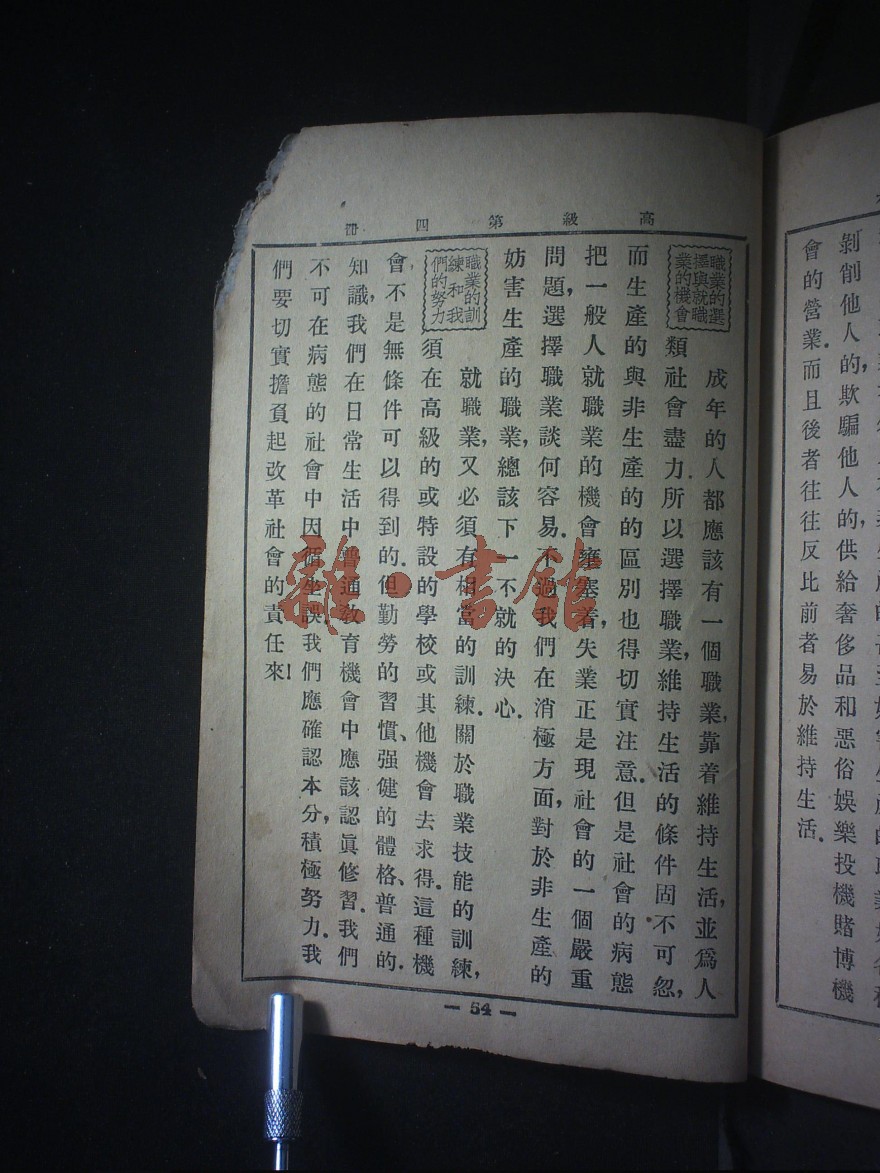 會的營業．而且後者往往反比前者易於維持生活．
剝削他人的，欺騙他人的，供給奢侈品和惡俗娛樂投機賭博機
高級第四冊
職業的選
擇與就職
業的機會
成年的人都應該有一個職業，靠着維持生活，並爲人
類社會盡力．所以選擇職業，維持生活的條件固不可忽，
而生產的與非生產的的區別也得切實注意．但是社會的病態
把一般人就職業的機會壅塞着，失業正是現社會的一個嚴重
問題，選擇職業談何容易．不過我們在消極方面，對於非生產的
妨害生產的職業，總該下一不就的決心．
職業的訓
練和我
們的努力
就職業，又必須有相當的訓練．關於職業技能的訓練，
須在高級的或特設的學校或其他機會去求得．這種機
會，不是無條件可以得到的．但勤勞的習慣、强健的體格、普通的
知識，我們在日常生活中普通教育機會中應該認眞修習．我們
不可在病態的社會中因循坐誤．我們應確認本分，積極努力．我
們要切實擔負起改革社會的責任來！
— 54 —
雜·書館